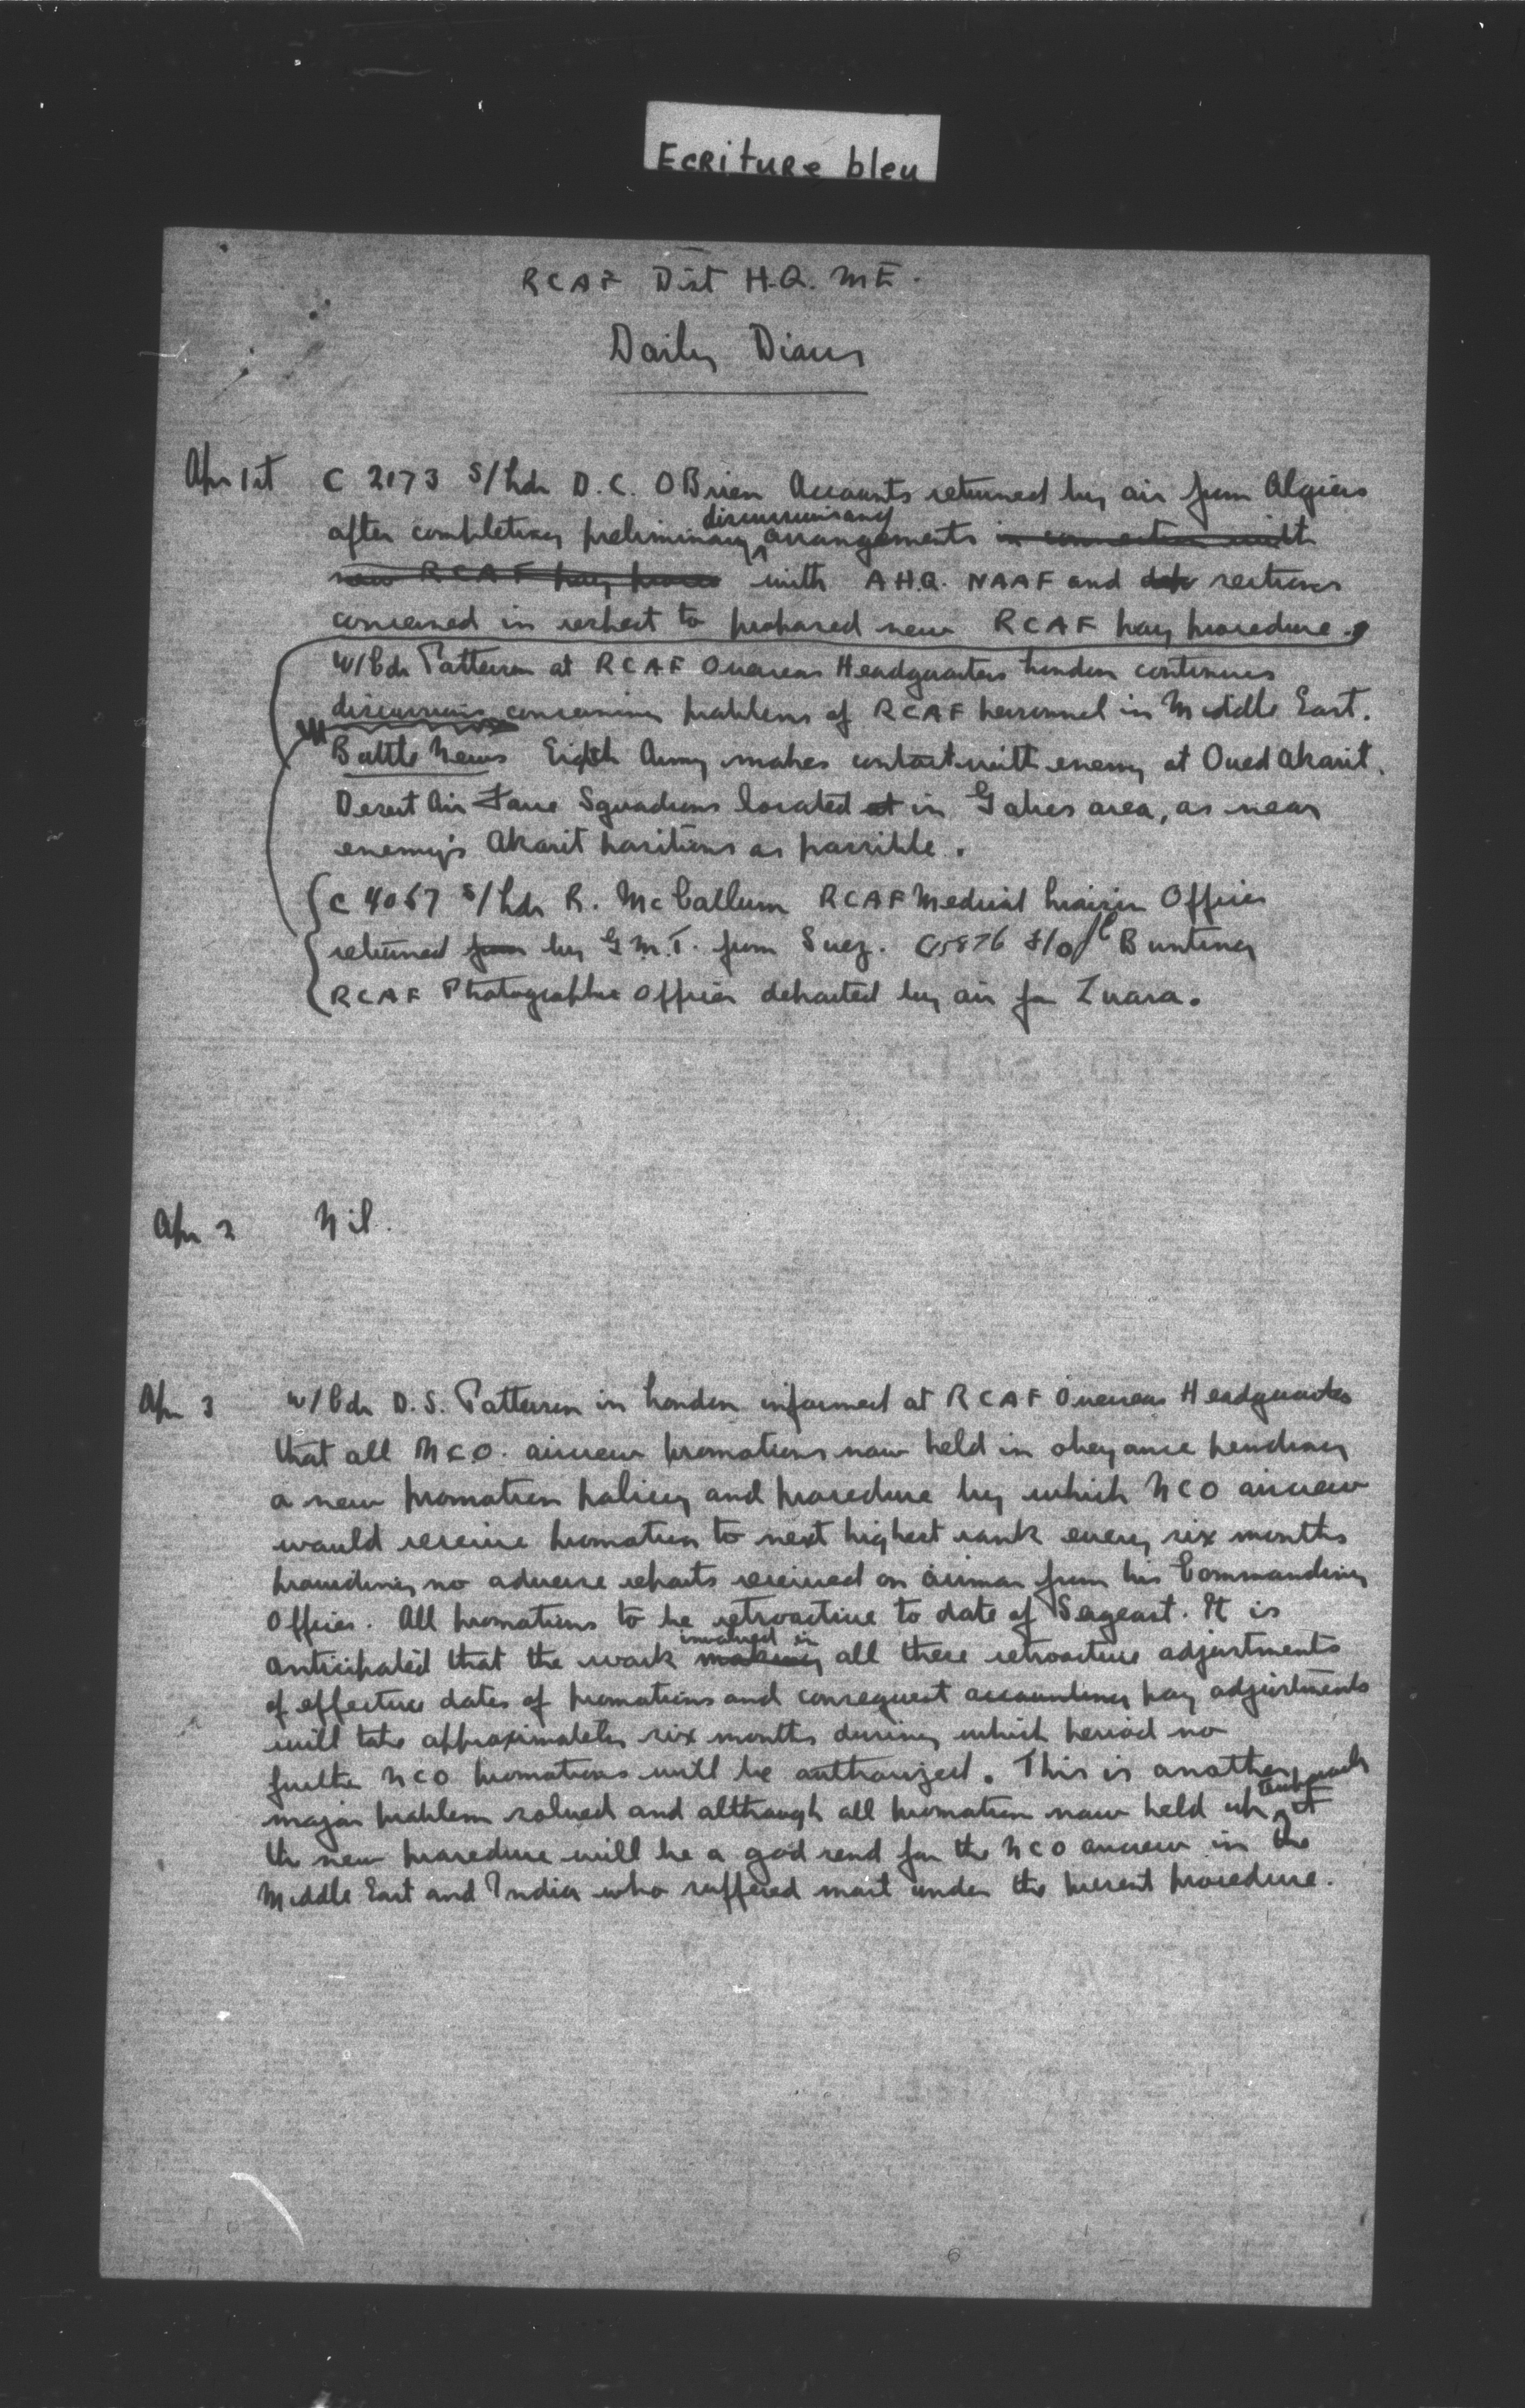 ECRiture bleu
RCAF Dist H.Q. ME.
Daily Diary
Apr 1st C 2173 S/Ldr D.C. OBrien Accounts returned by air from Algiers
after completing preliminary discussions and arrangements in connection with
new RCAF pay proced with A.H.Q. NAAF and sections
concerned in respect to proposed new RCAF pay procedure.
W/Cdr Patterson at RCAF Overseas Headquarters London continues
discussions concerning problems of RCAF personnel in Middle East.
Battle News Eighth Army makes contact with enemy at Oued Akarit.
Desert Air Force Squadrons located at in Gabes area, as near
enemy's Akarit positions as possible.
C 4067 S/Ldr R. McCallum RCAF Medical Liaison Officer
returned from by G.M.T. from Suez. C5876 F/O Bunting
RCAF Photographic Officer departed by air for Zuara.
Apr 2 Nil.
Apr 3 W/Cdr D.S. Patterson in London informed at RCAF Overseas Headquarters
that all NCO. aircrew promotions now held in abeyance pending
a new promotion policy and procedure by which NCO aircrew
would receive promotion to next highest rank every six months
providing no adverse reports received on airman from his Commanding
Officer. All promotions to be retroactive to date of Sergeant. It is
anticipated that the work making involved in all these retroactive adjustments
of effective dates of promotions and consequent accounting pay adjustments
will take approximately six months during which period no
further NCO promotions will be authorized. This is another
major problem solved and although all promotion now held up it
the new procedure will be a god send for the NCO aircrew in the
Middle East and India who suffered most under the present procedure.